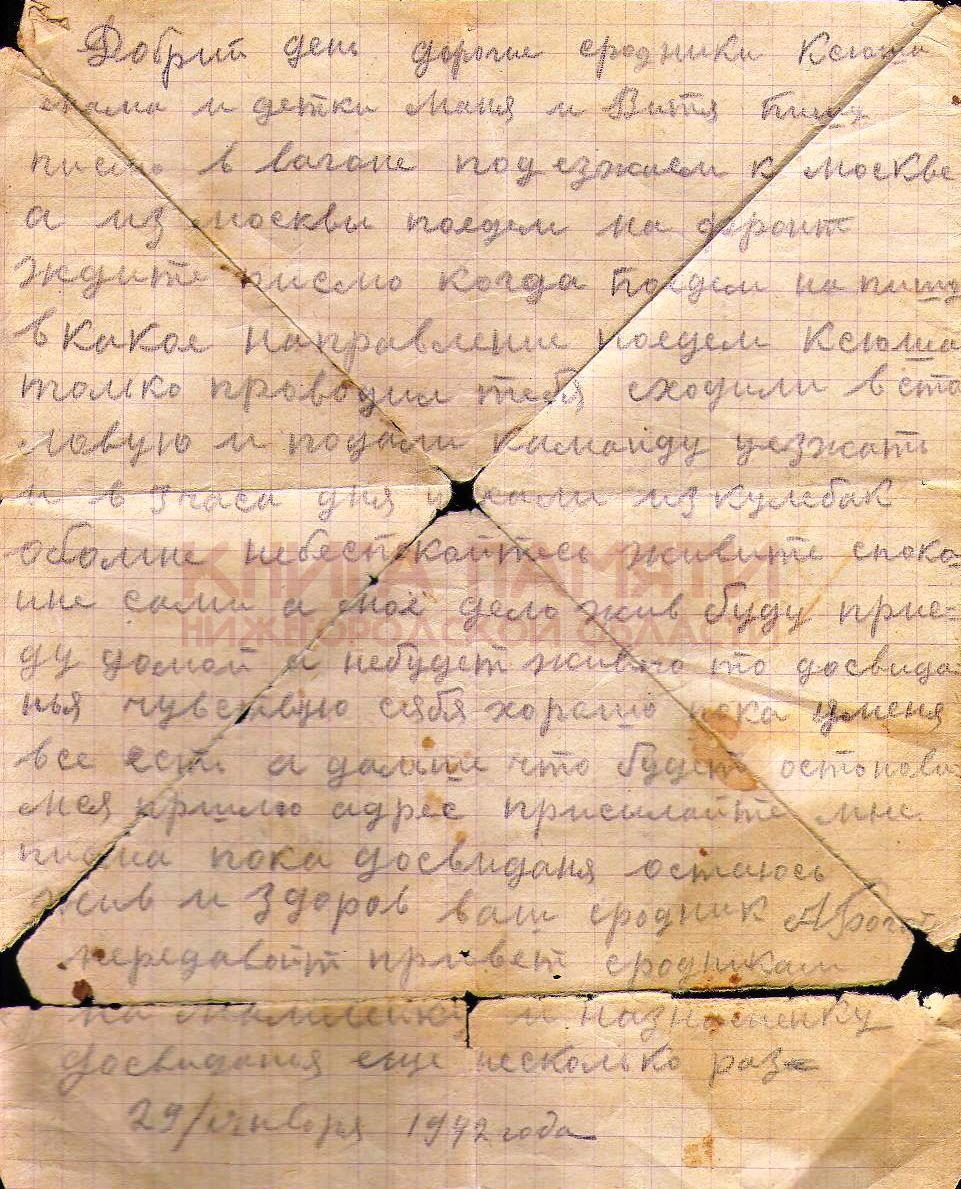 Добрит ден дорогие сродники Ксюша
мама и детки Маня и Витя Пишу
писмо в вагоне подезжаем к москве
а из москвы поедем на фронт
Ждите писмо когда Поедем напишу
вКакое Направление поедем Ксюша
толко проводил тебя сходили в сто
ловую и подали Каманду уезжать
и в 3 часа дня уехали из кулебак
обомне небеспокойтесь живите споко
ине сами а мое дело жив буду прие-
ду домой а небудет живого то досвида-
нья чувствую сябя хорошо пока уменя
все есть а дальше что будет остонови-
мся пришлю адрес присылайте мне
писма пока досвиданя остаюсь
жив и Здоров ваш сродник
передавайт привет сродникам
на и
досвиданя еще несколько раз
29/января 1942 года
КНИГА ПАМЯТИ
НИЖЕГОРОДСКОЙ ОБЛАСТИ